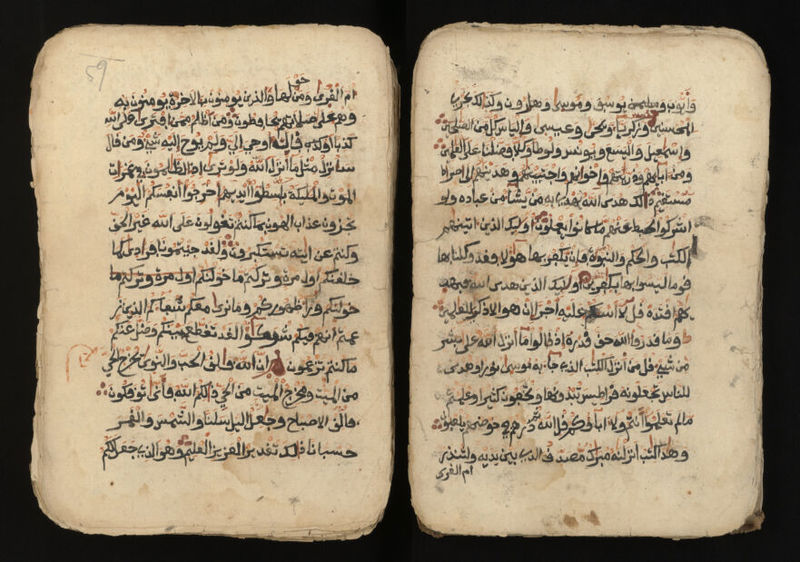 وأيوب ويوسف وموسى وهرون وكذلك نجزي
المحسنين وزكريا ويحيى وعيسى والياس كل من الصلحين
واسمعيل واليسع ويونس ولوطا وكلا فضلنا على العلمين
ومن ابايهم وذريتهم وإخوانهم واجتبينهم وهدينهم إلى صراط
مستقيم ذلك هدى الله يهدي به من يشاء من عباده ولو
اشركوا لحبط عنهم ما كانوا يعملون أوليك الذين اتينهم
الكتب والحكم والنبوة فإن يكفر بها هؤلاء فقد وكلنا بها
قوما ليسوا بها بكفرين أوليك الذين هدى الله فبهد
يهم اقتده قل لا أسلكم عليه أجرا إن هو الا ذكرى للعلمين
وما قدروا الله حق قدره إذ قالوا ما أنزل الله على بشر
من شيء قل من أنزل الكتب الذي جاء به موسى نورا وهدى
للناس تجعلونه قراطيس تبدونها وتخفون كثيرا وعلمتم
مالم تعلموا أنتم ولا اباؤكم قل الله ثم ذرهم في خوضهم يلعبون
وهذا كتب أنزلنه مبرك مصدق الذي بين يديه ولتنذر
ام القرى
59
ام القرى ومن حولها والذين يومنون بالاخرة يومنون به
وهم على صلاتهم يحافظون ومن أظلم ممن افترى على الله
كذبا أو قال أوحي إلي ولم يوح إليه شيء ومن قال
سأنزل مثل ما أنزل الله ولو ترى إذ الظلمون في غمرات
الموت والمليكة باسطوا أيديهم أخرجوا أنفسكم اليوم
تجزون عذاب الهون بما كنتم تقولون على الله غير الحق
وكنتم عن ايته تستكبرون ولقد جيتمونا فرادى كما
خلقنكم اول مرة وتركتم ما خولنكم اول مرة وتركتم ما
خولنكم وراء ظهوركم وما نرى معكم شفعاءكم الذين ز
عمتم أنهم فيكم شركؤا لقد تقطع بينكم وضل عنكم
ما كنتم تزعمون إن الله فالق الحب والنوى يخرج الحي
من الميت ومخرج الميت من الحي ذلكم الله فأنى توفكون
فالق الاصباح وجعل اليل سكنا والشمس والقمر
حسبانا ذلك تقدير العزيز العليم وهو الذي جعل لكم